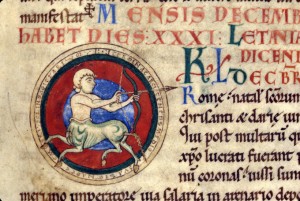 manifestat
MENSIS DECEMB
HABET DIES: XXXI. LETANIA
DICEND
KL DECBR
Rome. natal scorum
chrisanti & darie uir
Qui post multarū
xp̄o lucrati fuerant
nū coronas. iussu
meriano imperatore uia salaria in arenario depo